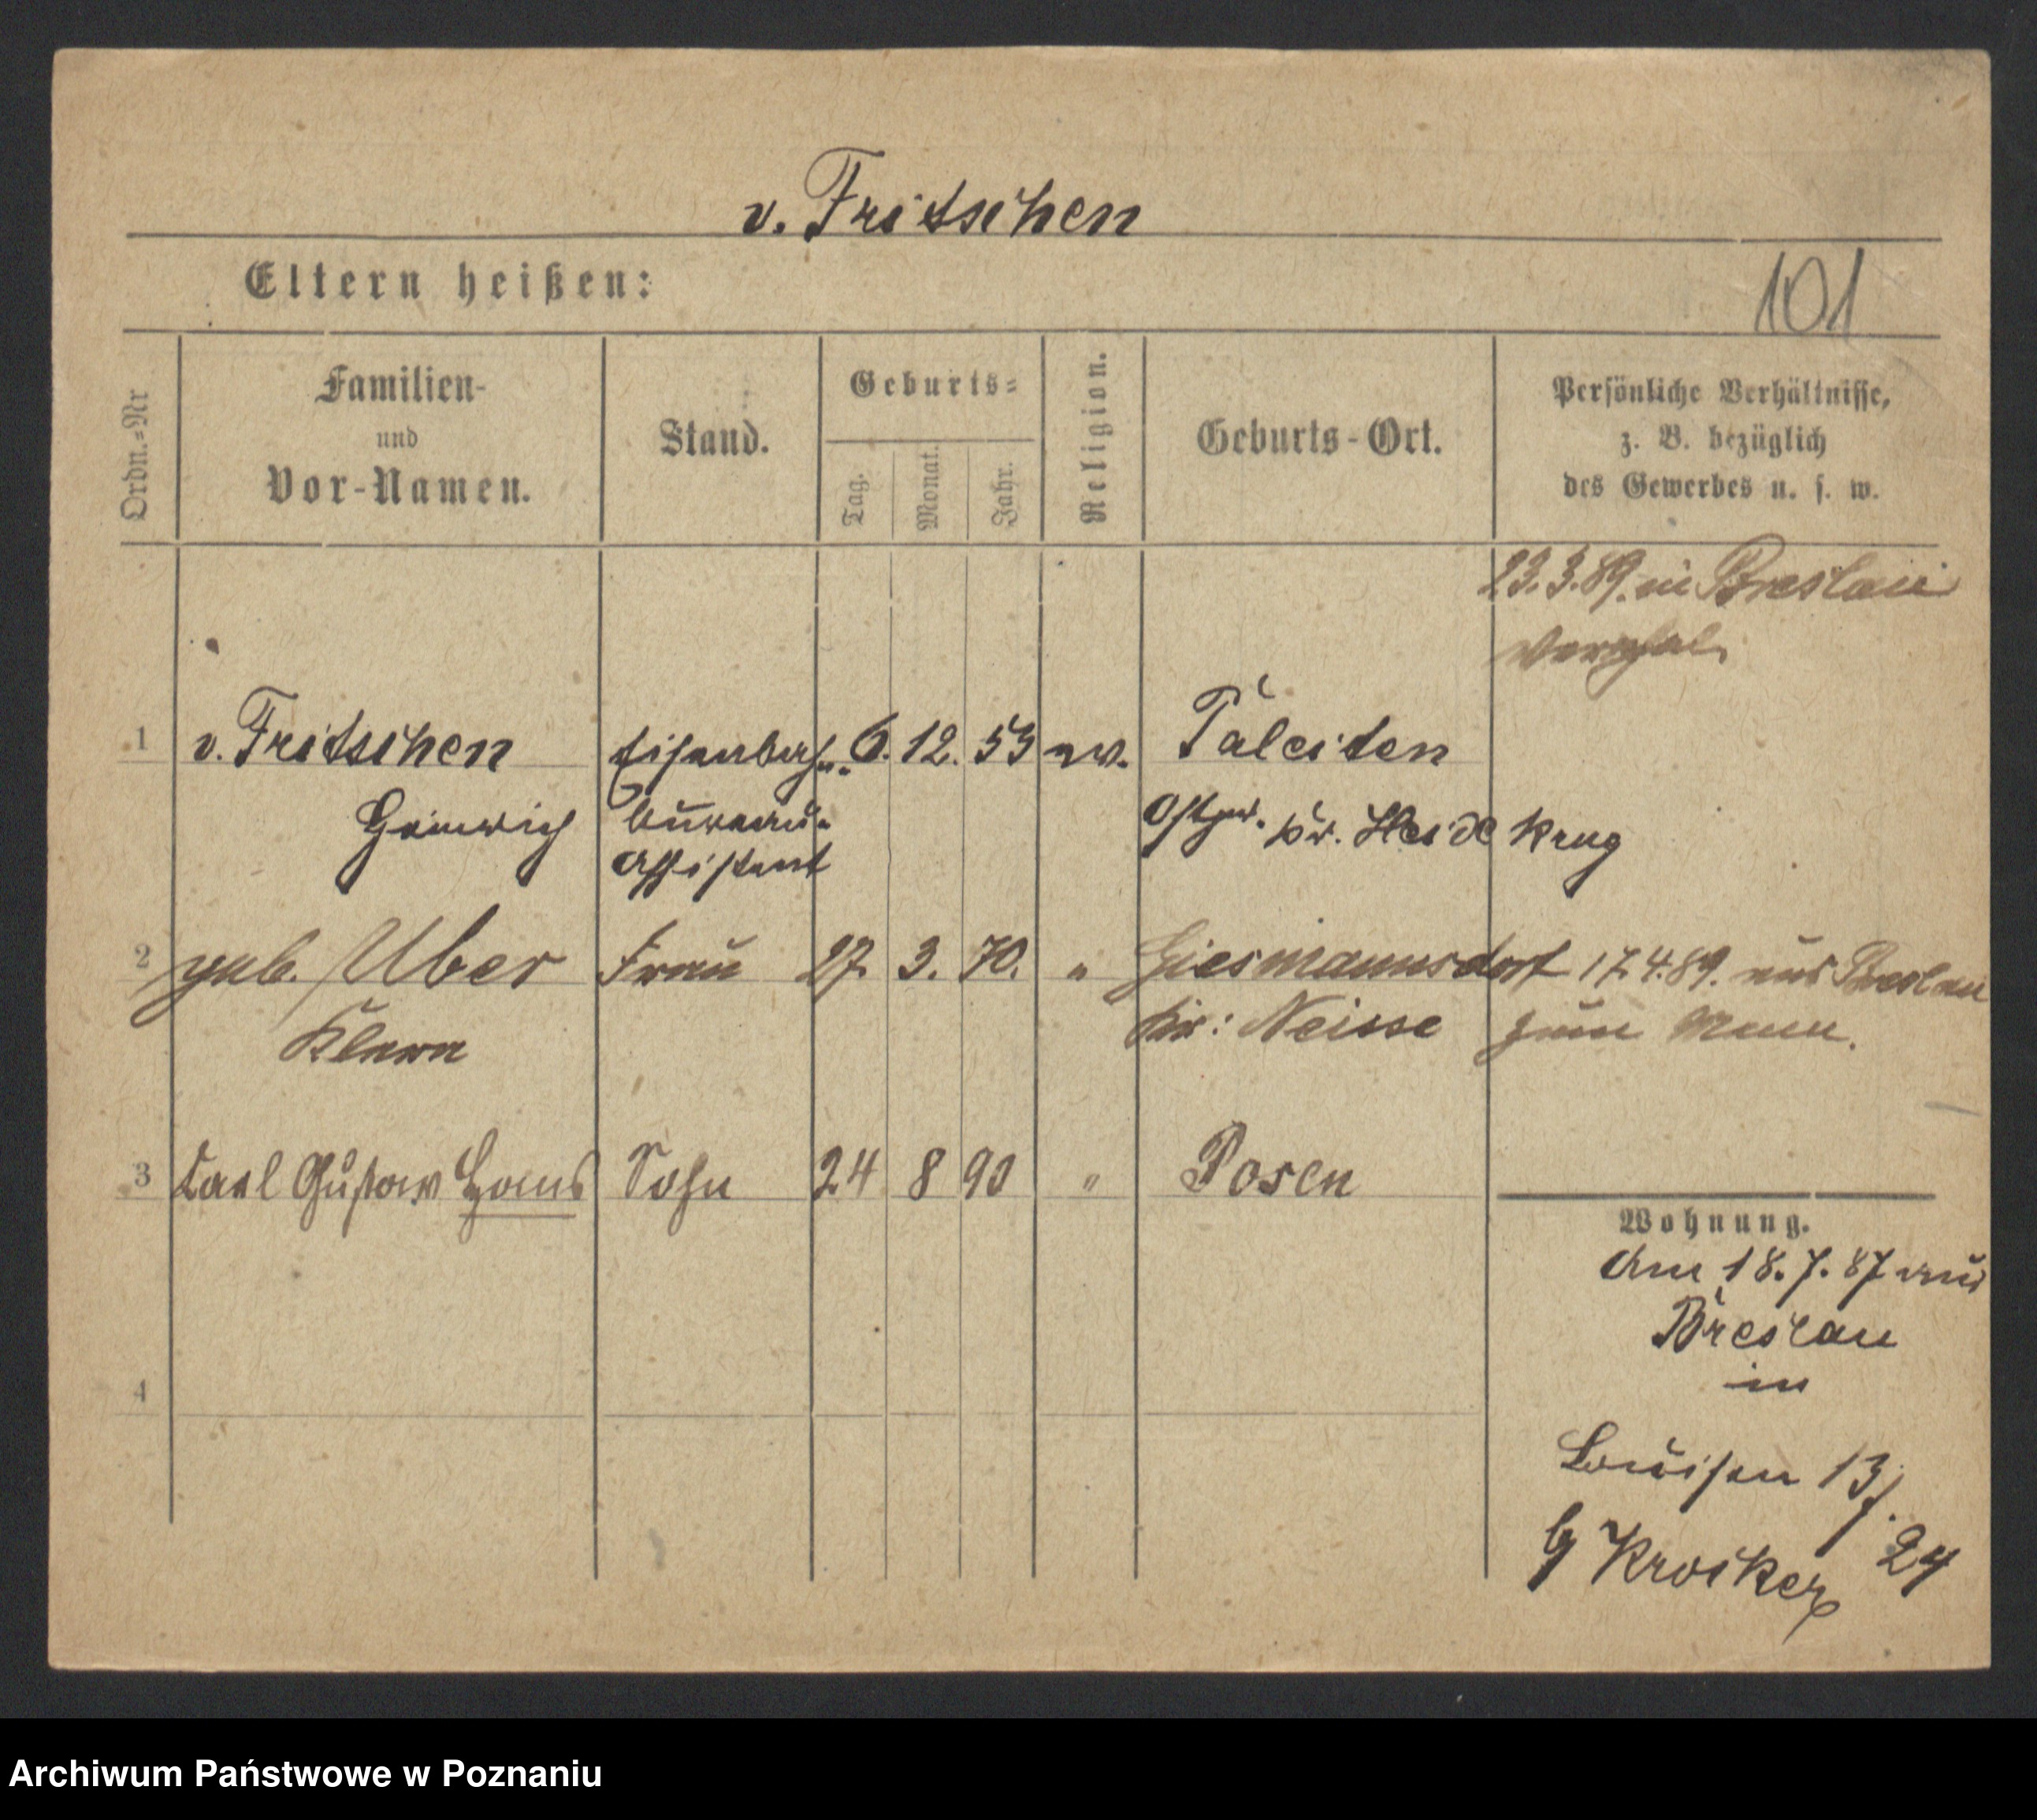 v. Fritschen
Eltern heißen:
101
Ordn.-Nr
Familien-
und
Vor-Namen.
Stand.
Geburts-
Tag.
Monat.
Jahr.
Religion.
Geburts-Ort.
Persönliche Verhältnisse,
z. B. bezüglich
des Gewerbes u. s. w.
23.3.89. in Breslau
1 v. Fritschen Eisenbahn- 6. 12. 53 ev. Paleiten
Heinrich bureau- Ostpr. Kr. Heidekrug
Assistent
2 geb. Uber Frau 27. 3. 70. " Giesmannsdorf 17.4.89. aus Breslau
Klara Kr: Neisse zum Mann.
3 Carl Gustav Hans Sohn 24 8 90 " Posen
Wohnung.
Am 18.7.87 aus
Breslau
in
4
Louisen 13
b/ Kroiker 24
Archiwum Państwowe w Poznaniu